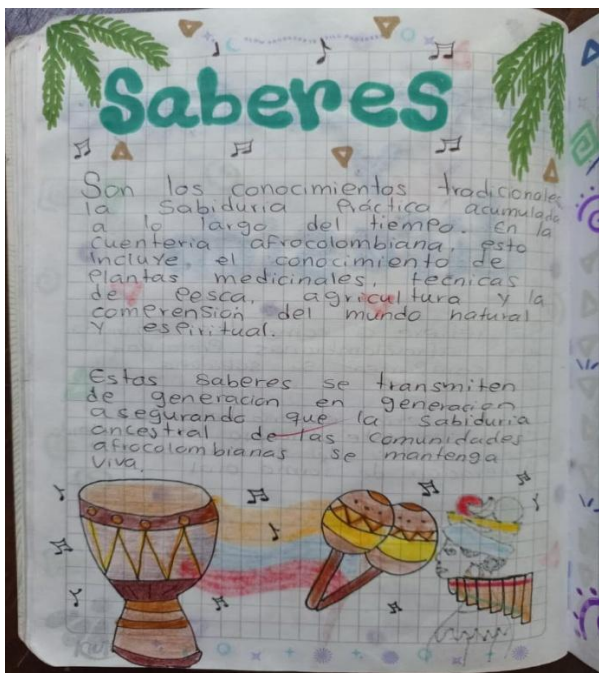 Saberes
Son los conocimientos tradicionales
la Sabiduria Práctica acumulada
a lo largo del tiempo. En la
cuenteria afrocolombiana, esto
incluye, el conocimiento de
Plantas medicinales, tecnicas
de Pesca, agricultura y la
comprensión del mundo natural
y espiritual.
Estas saberes se transmiten
de generacion en generacion
asegurando que la sabiduria
ancestral de las comunidades
afrocolombianas se mantenga
viva.